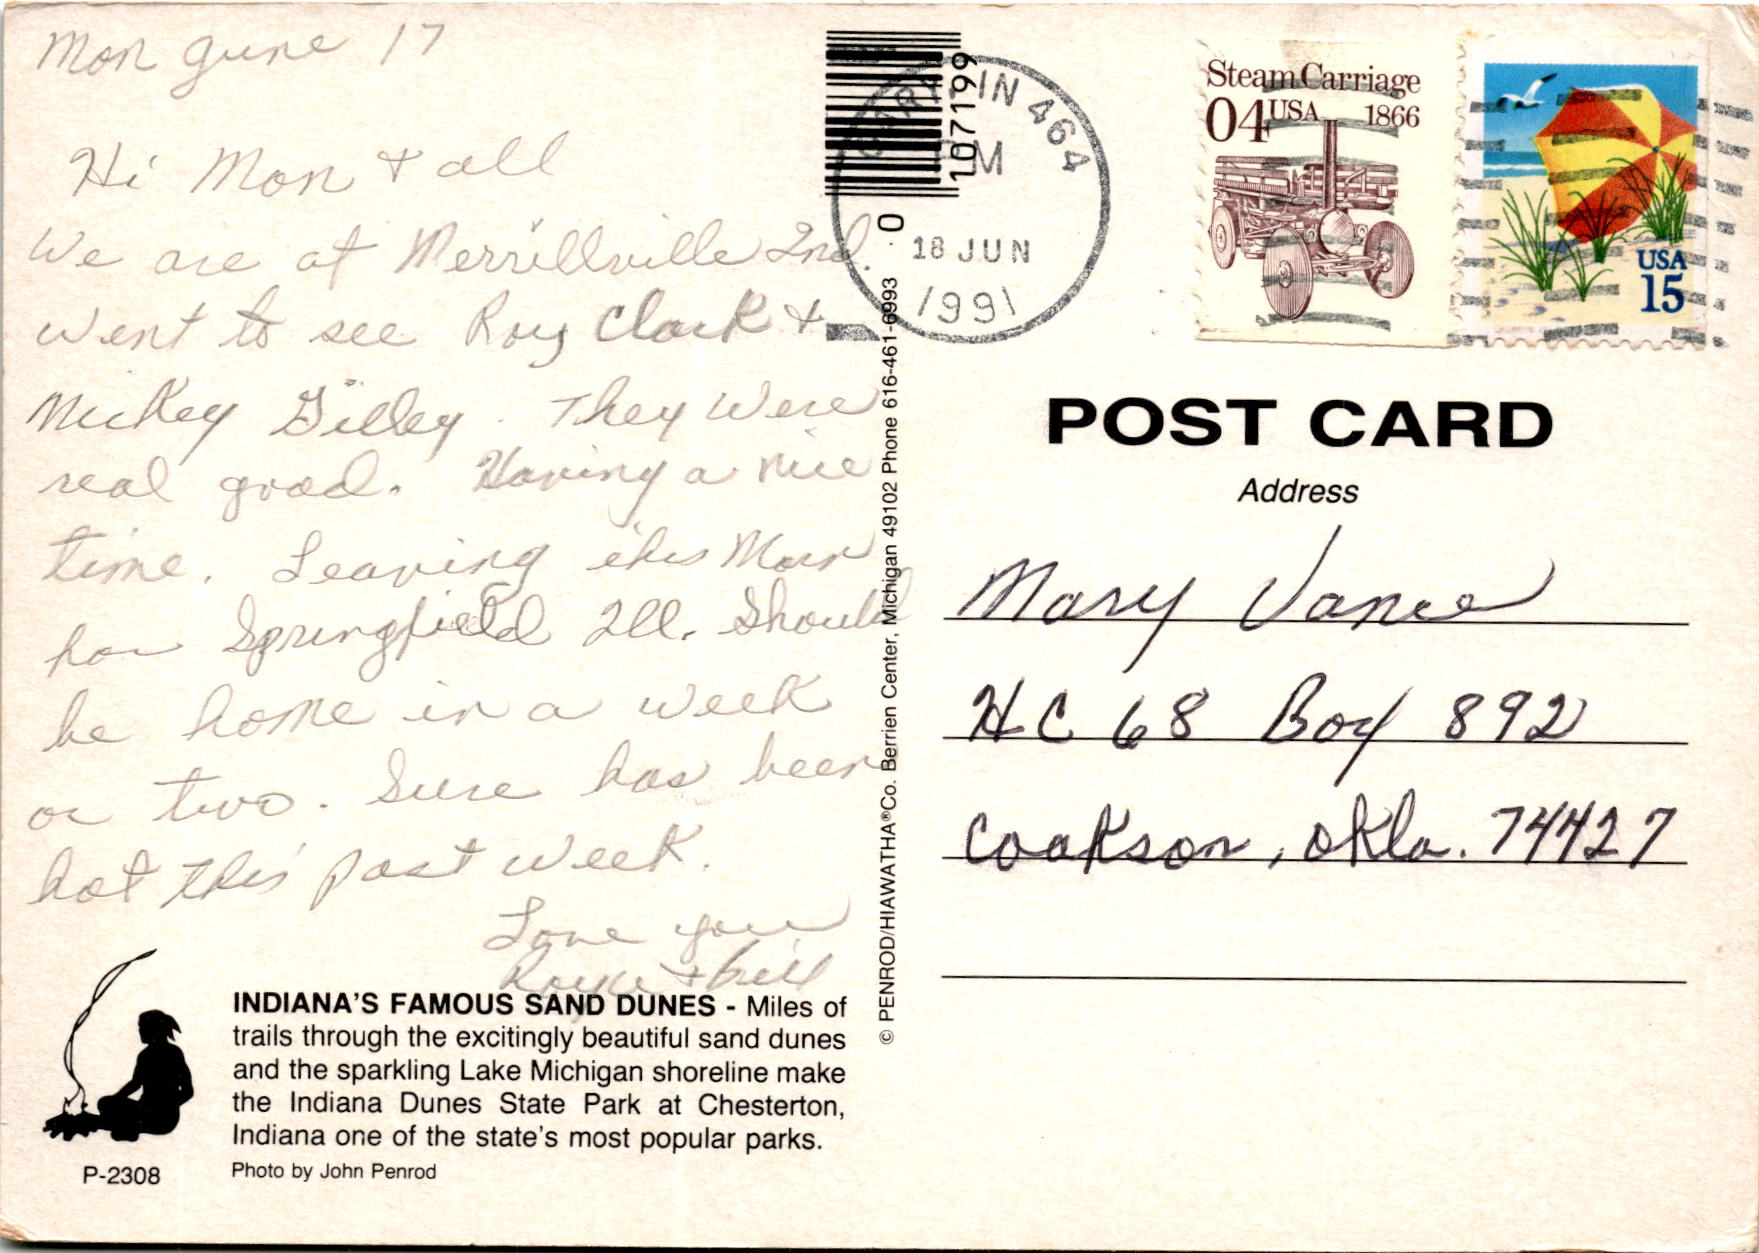 Mon June 17
Hi Mom & all
We are at Merrillville Ind.
went to see Roy Clark &
Mickey Gilley. They were
real good. Having a nice
time. Leaving this Morn
for Springfield Ill. Should
be home in a week
or two. Sure has been
hot this past week.
Love you
& Bill
INDIANA'S FAMOUS SAND DUNES - Miles of
trails through the excitingly beautiful sand dunes
and the sparkling Lake Michigan shoreline make
the Indiana Dunes State Park at Chesterton,
Indiana one of the state's most popular parks.
Photo by John Penrod
P-2308
© PENROD/HIAWATHA® Co. Berrien Center, Michigan 49102 Phone 616-461-6993
0 107199
IN 464
PM
18 JUN
1991
Steam Carriage
04 USA 1866
USA
15
POST CARD
Address
Mary Vance
HC 68 Box 892
Cookson, Okla. 74427